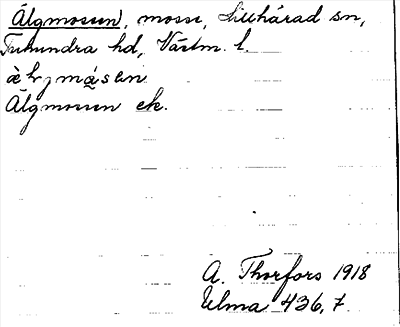 Älgmossen, mosse, Lillhärad sn,
Tuhundra hd, Västm. l.
Älgmossen ek.
A. Thorfors 1918
Ulma 436,7